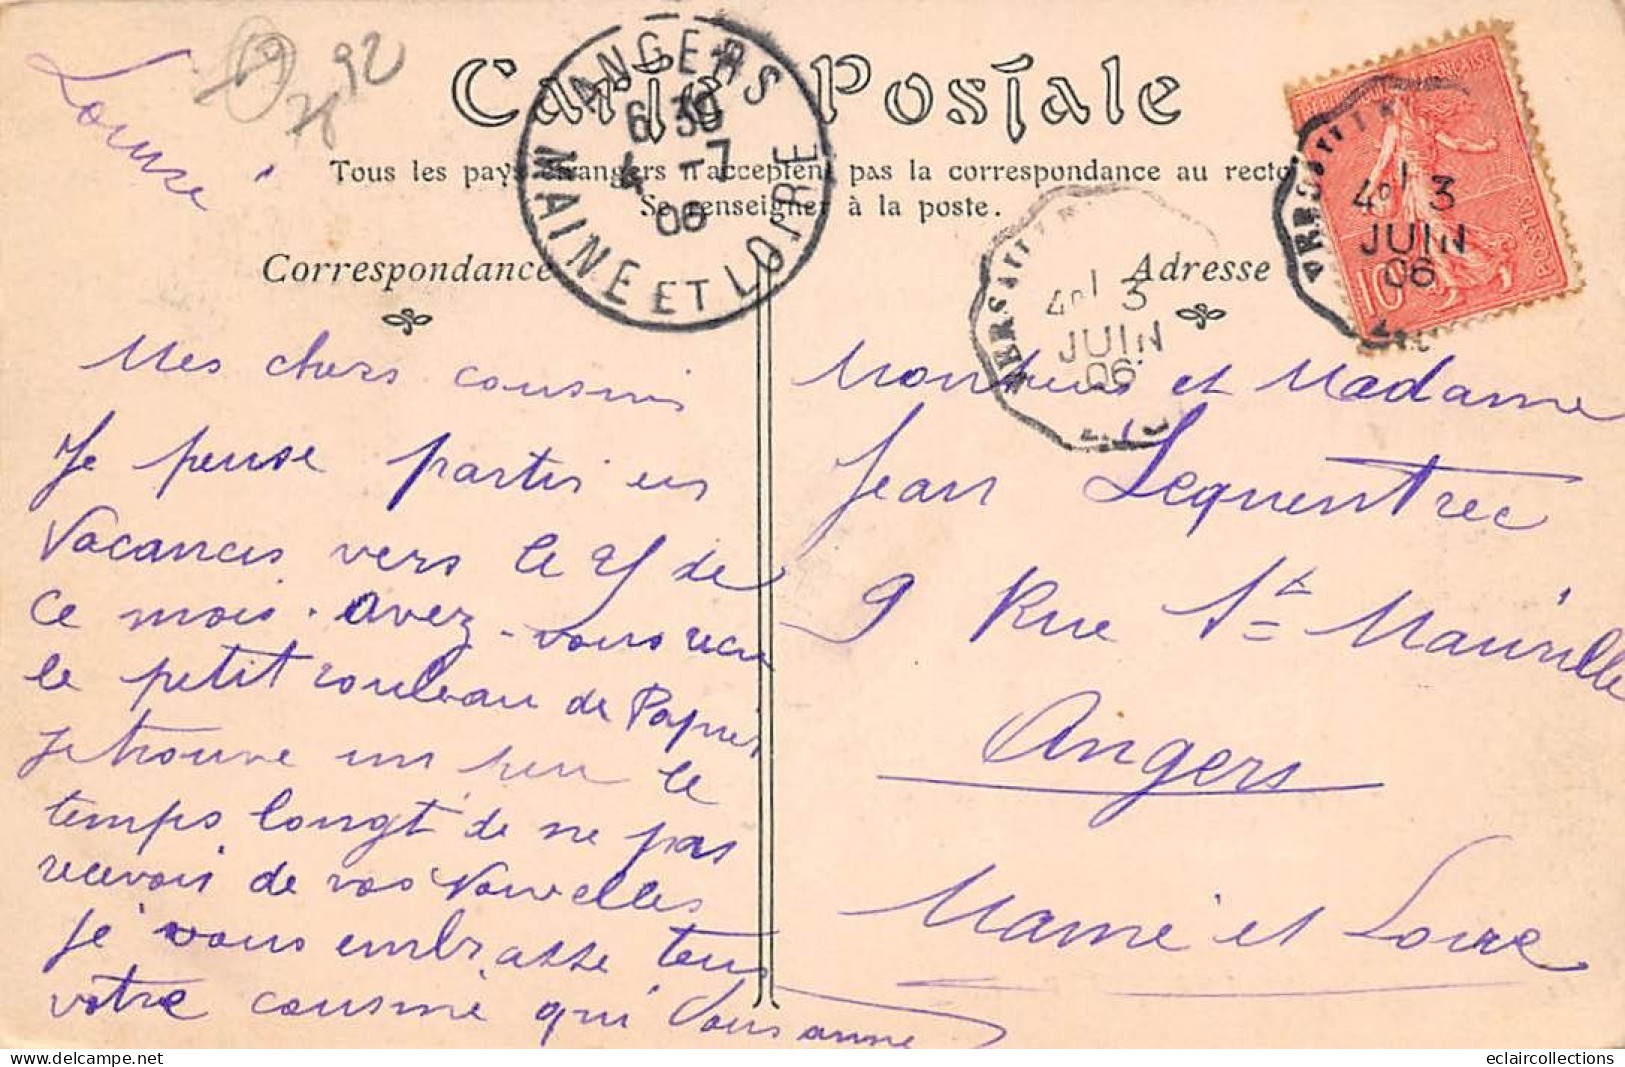 Louise
92
Carte Postale
Tous les pays étrangers n'acceptent pas la correspondance au recto
Se renseigner à la poste.
Correspondance
Adresse
ANGERS
6 30
4 -7
06
MAINE ET LOIRE
4° 3
JUIN
06
4° 3
JUIN
06
RÉPUBLIQUE FRANÇAISE
POSTES
10
Mes chers cousins
Je pense partir en
Vacances vers le 25 de
ce mois. avez-vous recu
le petit rouleau de Papier
je trouve un peu le
temps longt de ne pas
recevoir de vos Nouvelles
je vous embrasse tous
votre cousine qui vous aime
Monsieur et Madame
Jean Lequentrec
9 Rue Ste Maurille
Angers
Maine et Loire
eclaircollections